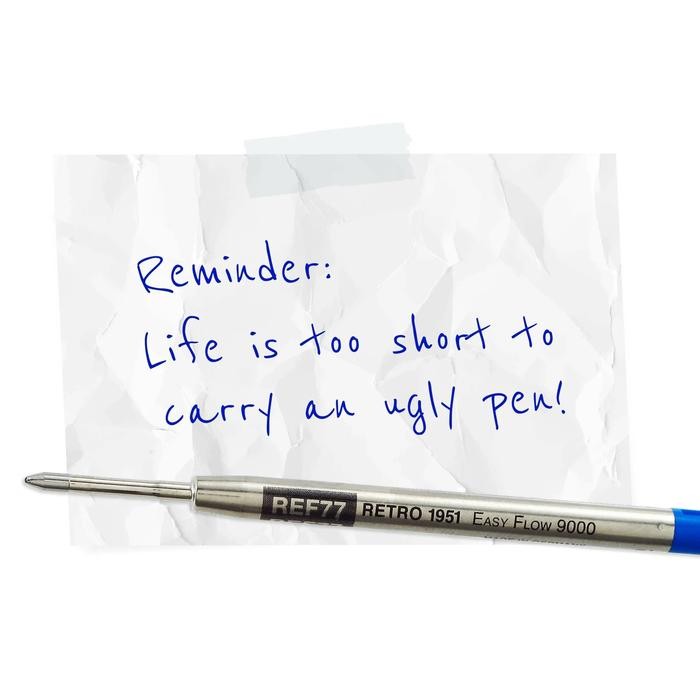 Reminder:
Life is too short to
carry an ugly pen!
REF77 RETRO 1951 EASY FLOW 9000